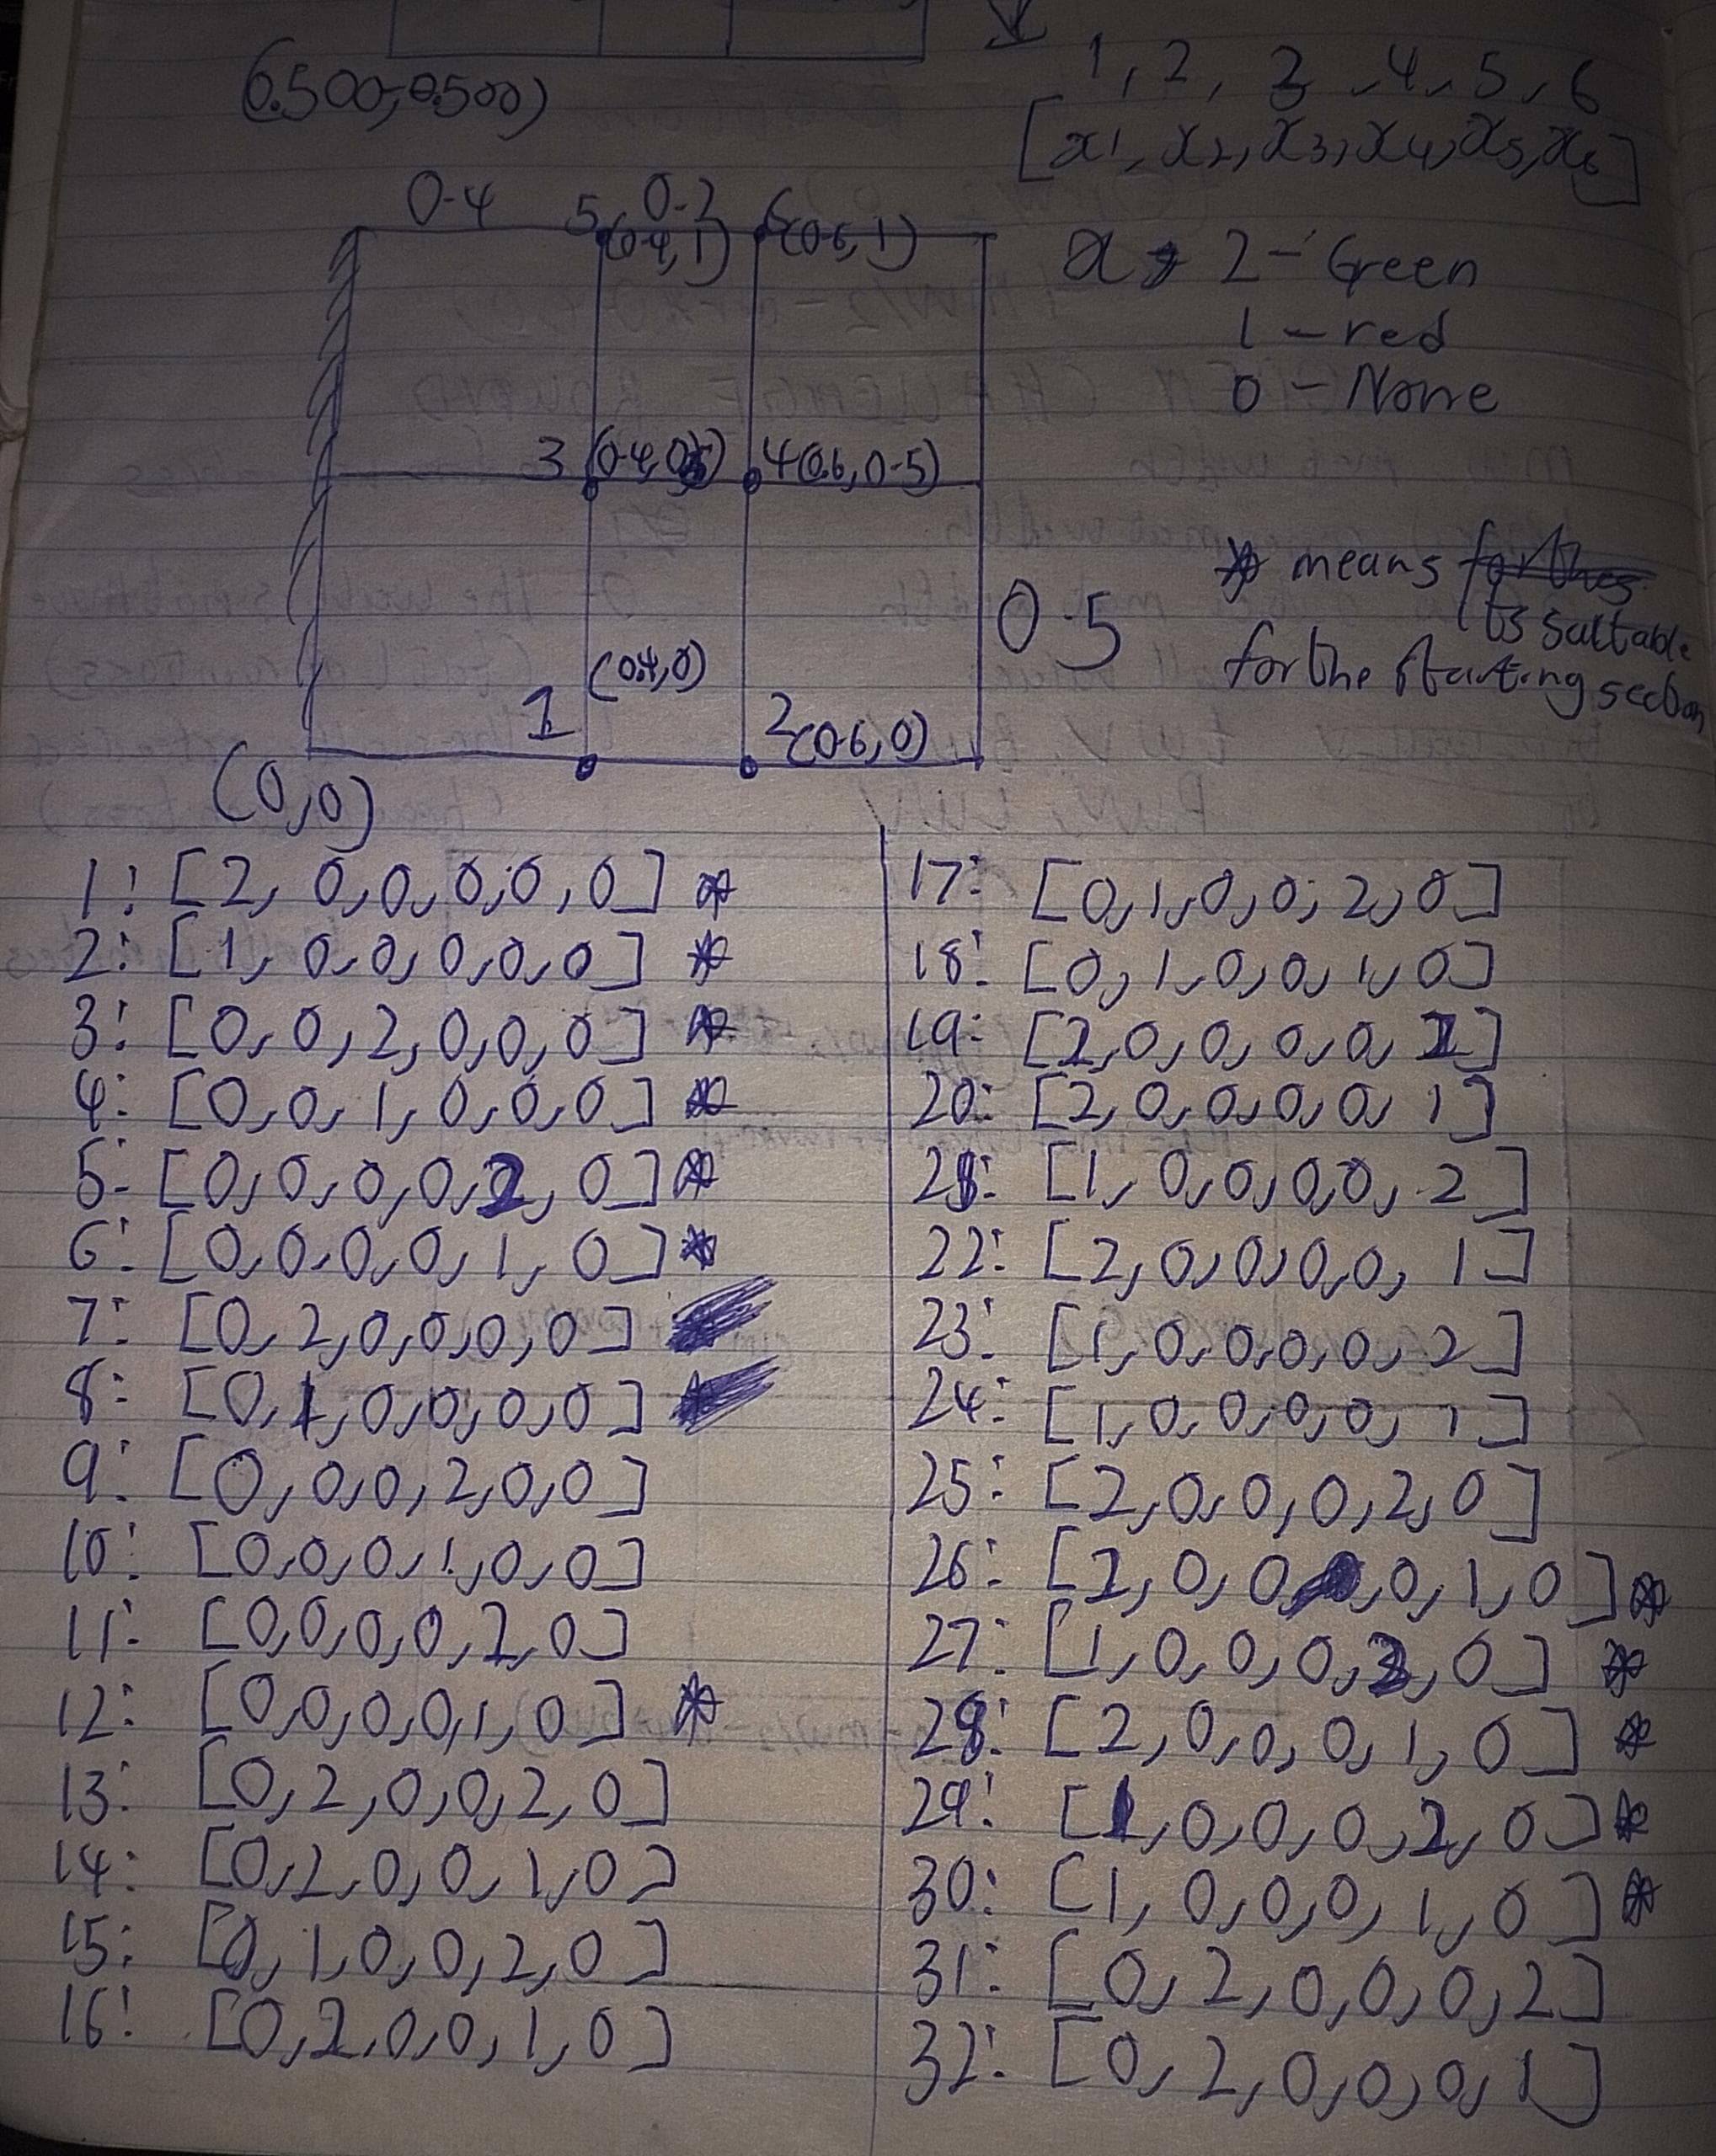 (0.500,0.500)
1, 2, 3, 4, 5, 6
[x1, x2, x3, x4, x5, x6]
0.4
5 0.2 6
(0.4, 1) (0.6, 1)
x 2 - Green
1 - red
0 - None
3 (0.4, 0.5) 4(0.6, 0.5)
* means
is suitable
for the starting section
0.5
(0.4, 0)
1 2(0.6, 0)
(0,0)
1: [2, 0, 0, 0, 0, 0] *
2: [1, 0, 0, 0, 0, 0] *
3: [0, 0, 2, 0, 0, 0] *
4: [0, 0, 1, 0, 0, 0] *
5- [0, 0, 0, 0, 2, 0] *
6: [0, 0, 0, 0, 1, 0] *
7: [0, 2, 0, 0, 0, 0]
8: [0, 1, 0, 0, 0, 0]
9: [0, 0, 0, 2, 0, 0]
10: [0, 0, 0, 1, 0, 0]
11: [0, 0, 0, 0, 2, 0]
12: [0, 0, 0, 0, 1, 0] *
13: [0, 2, 0, 0, 2, 0]
14: [0, 2, 0, 0, 1, 0]
15: [0, 1, 0, 0, 2, 0]
16: [0, 2, 0, 0, 1, 0]
17: [0, 1, 0, 0, 2, 0]
18: [0, 1, 0, 0, 1, 0]
19: [2, 0, 0, 0, 0, 2]
20: [2, 0, 0, 0, 0, 1]
21: [1, 0, 0, 0, 0, 2]
22: [2, 0, 0, 0, 0, 1]
23: [1, 0, 0, 0, 0, 2]
24: [1, 0, 0, 0, 0, 1]
25: [2, 0, 0, 0, 2, 0]
26: [2, 0, 0, 0, 1, 0] *
27: [1, 0, 0, 0, 2, 0] *
28: [2, 0, 0, 0, 1, 0] *
29: [1, 0, 0, 0, 2, 0] *
30: [1, 0, 0, 0, 1, 0] *
31: [0, 2, 0, 0, 0, 2]
32: [0, 2, 0, 0, 0, 1]